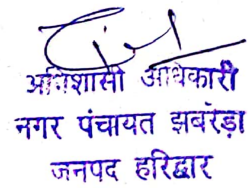 अधिशासी अधिकारी
नगर पंचायत झबरेड़ा
जनपद हरिद्वार